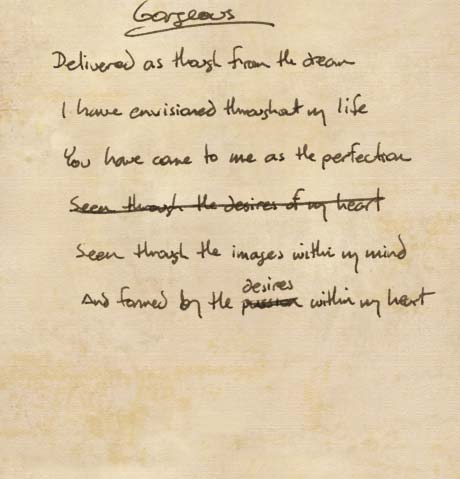 Gorgeous
Delivered as though from the dream
I have envisioned throughout my life
You have come to me as the perfection
Seen through the desires of my heart
Seen through the images within my mind
desires
And formed by the passion within my heart